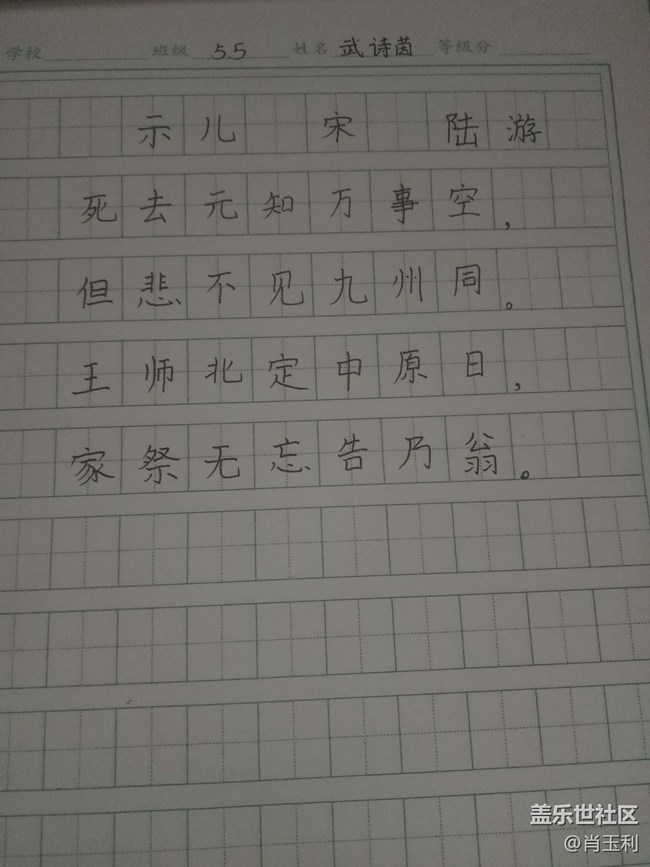 学校 班级 55 姓名 武诗茵 等级分
示儿 宋 陆游
死去元知万事空，
但悲不见九州同。
王师北定中原日，
家祭无忘告乃翁。
盖乐世社区
@肖玉利